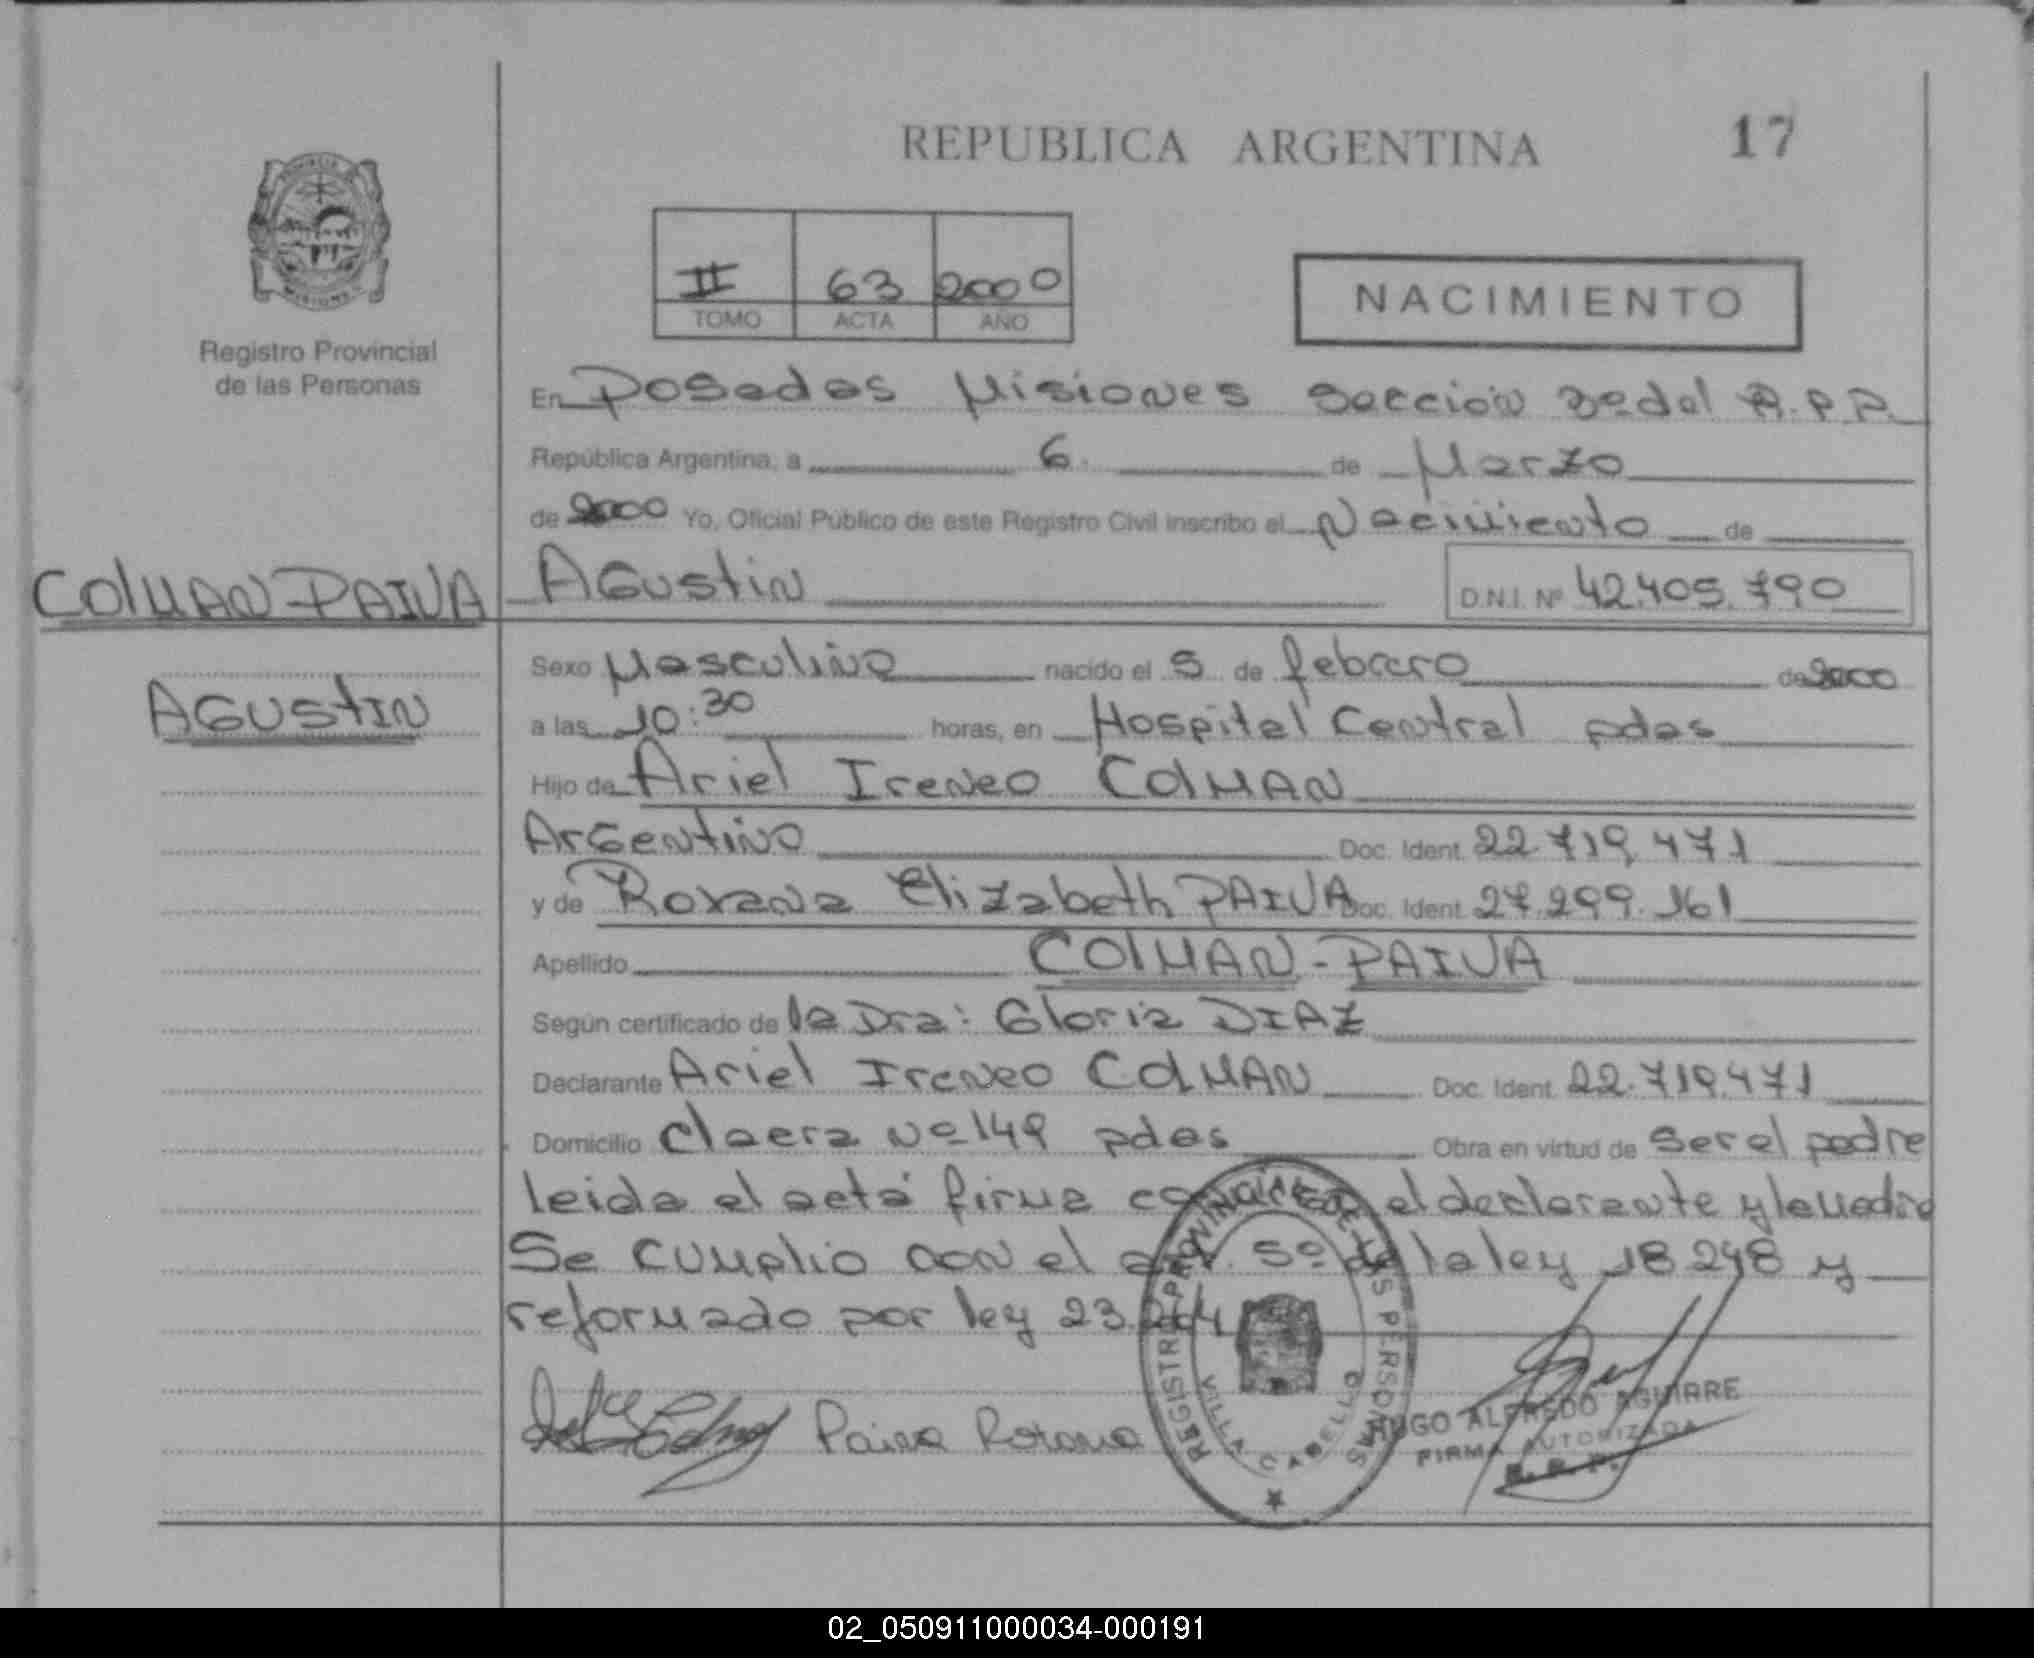 REPUBLICA ARGENTINA
17
II 63 2000
TOMO ACTA AÑO
NACIMIENTO
Registro Provincial
de las Personas
En Posadas Misiones Seccion 3ª del R.P.P.
República Argentina, a 6 de Marzo
de 2000 Yo, Oficial Público de este Registro Civil inscribo el Nacimiento de
COLMAN-PAIVA
AGUSTIN
Agustin D.N.I. Nº 42.405.790
Sexo Masculino nacido el 5 de febrero de 2000
a las 10:30 horas, en Hospital Central pdas
Hijo de Ariel Ireneo COLMAN
Argentino Doc. Ident. 22.719.471
y de Roxana Elizabeth PAIVA Doc. Ident. 27.299.161
Apellido COLMAN-PAIVA
Según certificado de la Dra: Gloria DIAZ
Declarante Ariel Ireneo COLMAN Doc. Ident. 22.719.471
Domicilio Nº 149 pdas Obra en virtud de ser el padre
leida el acta firma el declarante y la madre
Se cumplio con el art. 5º de la ley 18248 y
reformado por ley 23.264
Paiva Roxana
REGISTRO PROVINCIAL DE LAS PERSONAS
VILLA CABELLO
HUGO ALFREDO AGUIRRE
FIRMA AUTORIZADA
R. P. P.
02_050911000034-000191